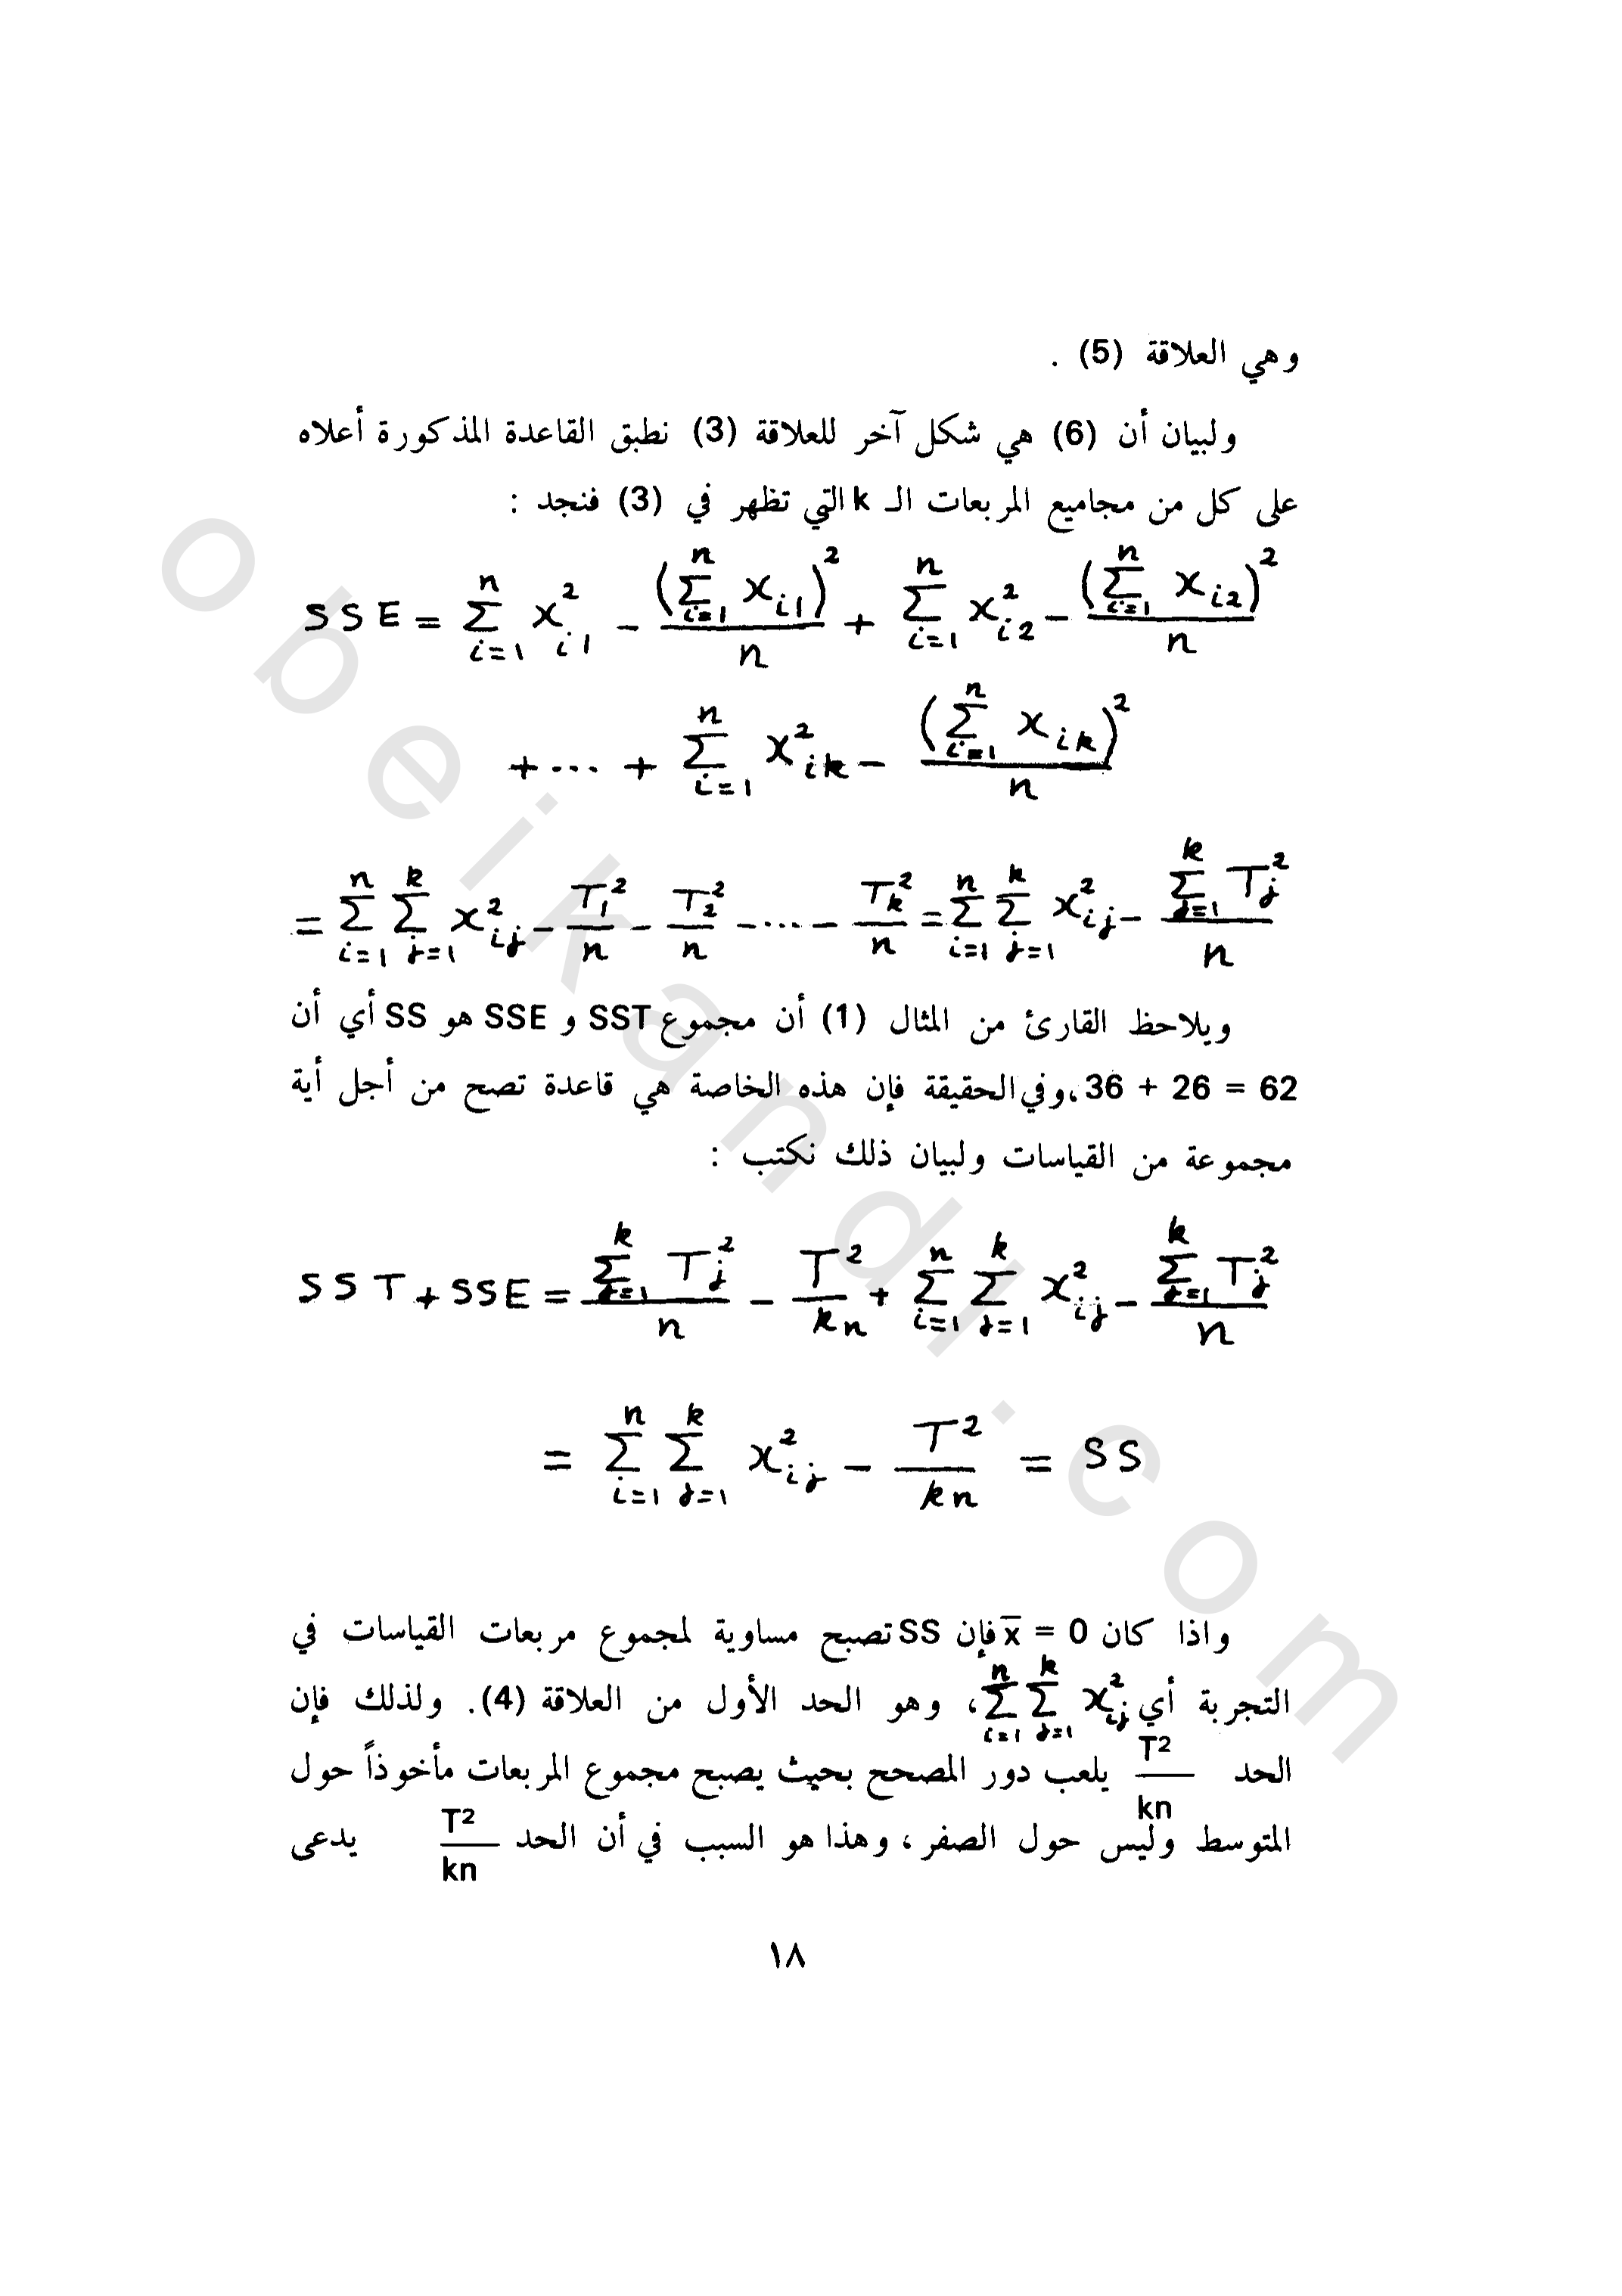 وهي العلاقة (5) .
ولبيان أن (6) هي شكل آخر للعلاقة (3) نطبق القاعدة المذكورة أعلاه
على كل من مجاميع المربعات الـ k التي تظهر في (3) فنجد :
$$SSE = \sum_{i=1}^{n} x_{i1}^2 - \frac{(\sum_{i=1}^{n} x_{i1})^2}{n} + \sum_{i=1}^{n} x_{i2}^2 - \frac{(\sum_{i=1}^{n} x_{i2})^2}{n}$$
$$+ \cdots + \sum_{i=1}^{n} x_{ik}^2 - \frac{(\sum_{i=1}^{n} x_{ik})^2}{n}$$
$$= \sum_{i=1}^{n} \sum_{j=1}^{k} x_{ij}^2 - \frac{T_1^2}{n} - \frac{T_2^2}{n} - \cdots - \frac{T_k^2}{n} = \sum_{i=1}^{n} \sum_{j=1}^{k} x_{ij}^2 - \frac{\sum_{j=1}^{k} T_j^2}{n}$$
ويلاحظ القارئ من المثال (1) أن مجموع SST و SSE هو SS أي أن
36 + 26 = 62، وفي الحقيقة فإن هذه الخاصة هي قاعدة تصح من أجل أية
مجموعة من القياسات ولبيان ذلك نكتب :
$$SST + SSE = \frac{\sum_{j=1}^{k} T_j^2}{n} - \frac{T^2}{kn} + \sum_{i=1}^{n} \sum_{j=1}^{k} x_{ij}^2 - \frac{\sum_{j=1}^{k} T_j^2}{n}$$
$$= \sum_{i=1}^{n} \sum_{j=1}^{k} x_{ij}^2 - \frac{T^2}{kn} = SS$$
واذا كان $\overline{x} = 0$ فإن SS تصبح مساوية لمجموع مربعات القياسات في
التجربة أي $\sum_{i=1}^{n} \sum_{j=1}^{k} x_{ij}^2$، وهو الحد الأول من العلاقة (4). ولذلك فإن
الحد $\frac{T^2}{kn}$ يلعب دور المصحح بحيث يصبح مجموع المربعات مأخوذاً حول
المتوسط وليس حول الصفر ، وهذا هو السبب في أن الحد $\frac{T^2}{kn}$ يدعى
١٨
obeikandl.com